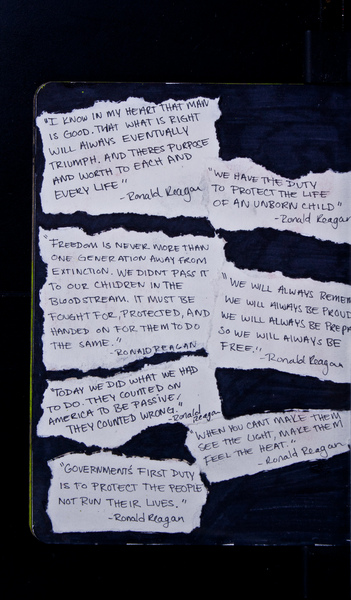 "I KNOW IN MY HEART THAT MAN
IS GOOD. THAT WHAT IS RIGHT
WILL ALWAYS EVENTUALLY
TRIUMPH. AND THERES PURPOSE
AND WORTH TO EACH AND
EVERY LIFE"
-Ronald Reagan
"WE HAVE THE DUTY
TO PROTECT THE LIFE
OF AN UNBORN CHILD"
-Ronald Reagan
"FREEDOM IS NEVER MORE THAN
ONE GENERATION AWAY FROM
EXTINCTION. WE DIDNT PASS IT
TO OUR CHILDREN IN THE
BLOODSTREAM. IT MUST BE
FOUGHT FOR, PROTECTED, AND
HANDED ON FOR THEM TO DO
THE SAME."
-RONALD REAGAN
"WE WILL ALWAYS REMEM
WE WILL ALWAYS BE PROUD
WE WILL ALWAYS BE PREP
SO WE WILL ALWAYS BE
FREE."
-Ronald Reagan
"TODAY WE DID WHAT WE HAD
TO DO. THEY COUNTED ON
AMERICA TO BE PASSIVE,
THEY COUNTED WRONG."
-Ronald
Reagan
"WHEN YOU CANT MAKE THEM
SEE THE LIGHT, MAKE THEM
FEEL THE HEAT."
-Ronald Reagan
"GOVERNMENTS FIRST DUTY
IS TO PROTECT THE PEOPLE
NOT RUN THEIR LIVES."
-Ronald Reagan